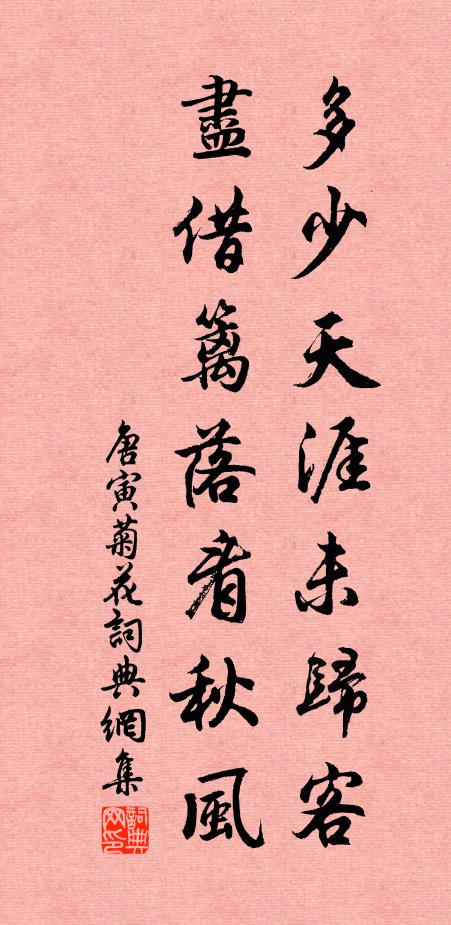 多少天涯未歸客
盡借籬落看秋風
唐寅菊花詞典網集
詞典網印